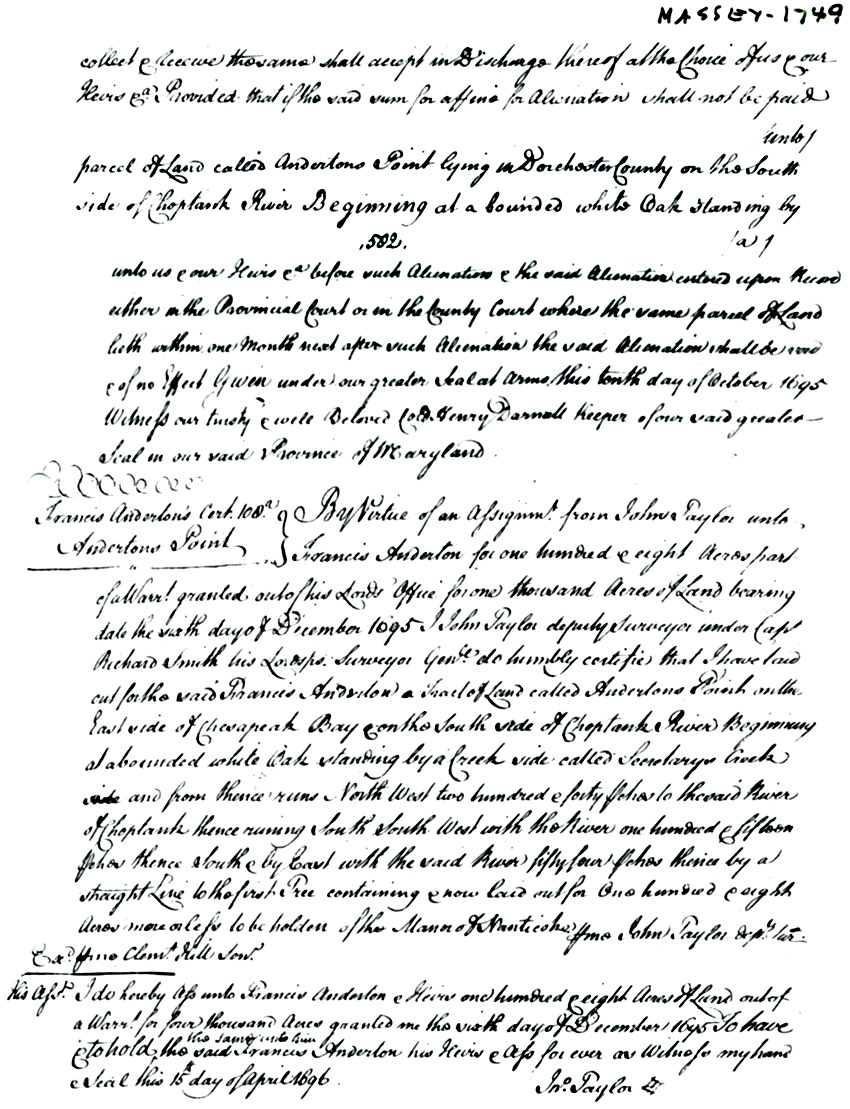 MASSEY-1749
collect & Receive the same shall accept in Discharge thereof at the Choice of us & our
Heirs &a Provided that if the said sum for a ffine for Alienation shall not be paid
(unto)
parcel of Land called Andertons Point lying in Dorchester County on the South
side of Choptank River Beginning at a bounded white Oak standing by
.582.
(a)
unto us & our Heirs &a before such Alienation & the said Alienation entered upon Record
either in the Provincial Court or in the County Court where the same parcel of Land
lieth within one Month next after such Alienation the said Alienation shall be void
& of no Effect Given under our greater Seal at Arms this tenth day of October 1695
Witness our trusty & well Beloved Col. Henry Darnall Keeper of our said greater
Seal in our said Province of Maryland
Francis Anderton's Cert. 108a
Andertons Point
By Virtue of an Assignmt. from John Taylor unto
Francis Anderton for one hundred & eight Acres part
of a Warrt. granted out of his Lords Office for one thousand Acres of Land bearing
date the sixth day of December 1695 I John Taylor deputy Surveyor under Capt
Richard Smith his Lordsps. Surveyor Genll. do humbly certifie that I have laid
out for the said Francis Anderton a Tract of Land called Andertons Point on the
East side of Chesapeak Bay & on the South side of Choptank River Beginning
at a bounded white Oak standing by a Creek side called Secretarys Creek
side and from thence runs North West two hundred & forty pches to the said River
of Choptank thence runing South South West with the River one hundred & fifteen
pches thence South & by East with the said River fifty four pches thence by a
straight Line to the first Tree containing & now laid out for One hundred & eight
Acres more or less to be holden of the Mannr of Nanticoke pme John Taylor depty. Sur.
Exd. pme Clemt. Hill Sevr.
His Asst. I do hereby Ass unto Francis Anderton & Heirs one hundred & eight Acres of Land out of
a Warrt. for four thousand Acres granted me the sixth day of December 1695 To have
the same unto him
& to hold the said Francis Anderton his Heirs & Ass for ever as Witness my hand
& Seal this 15th day of April 1696.
Jno. Taylor